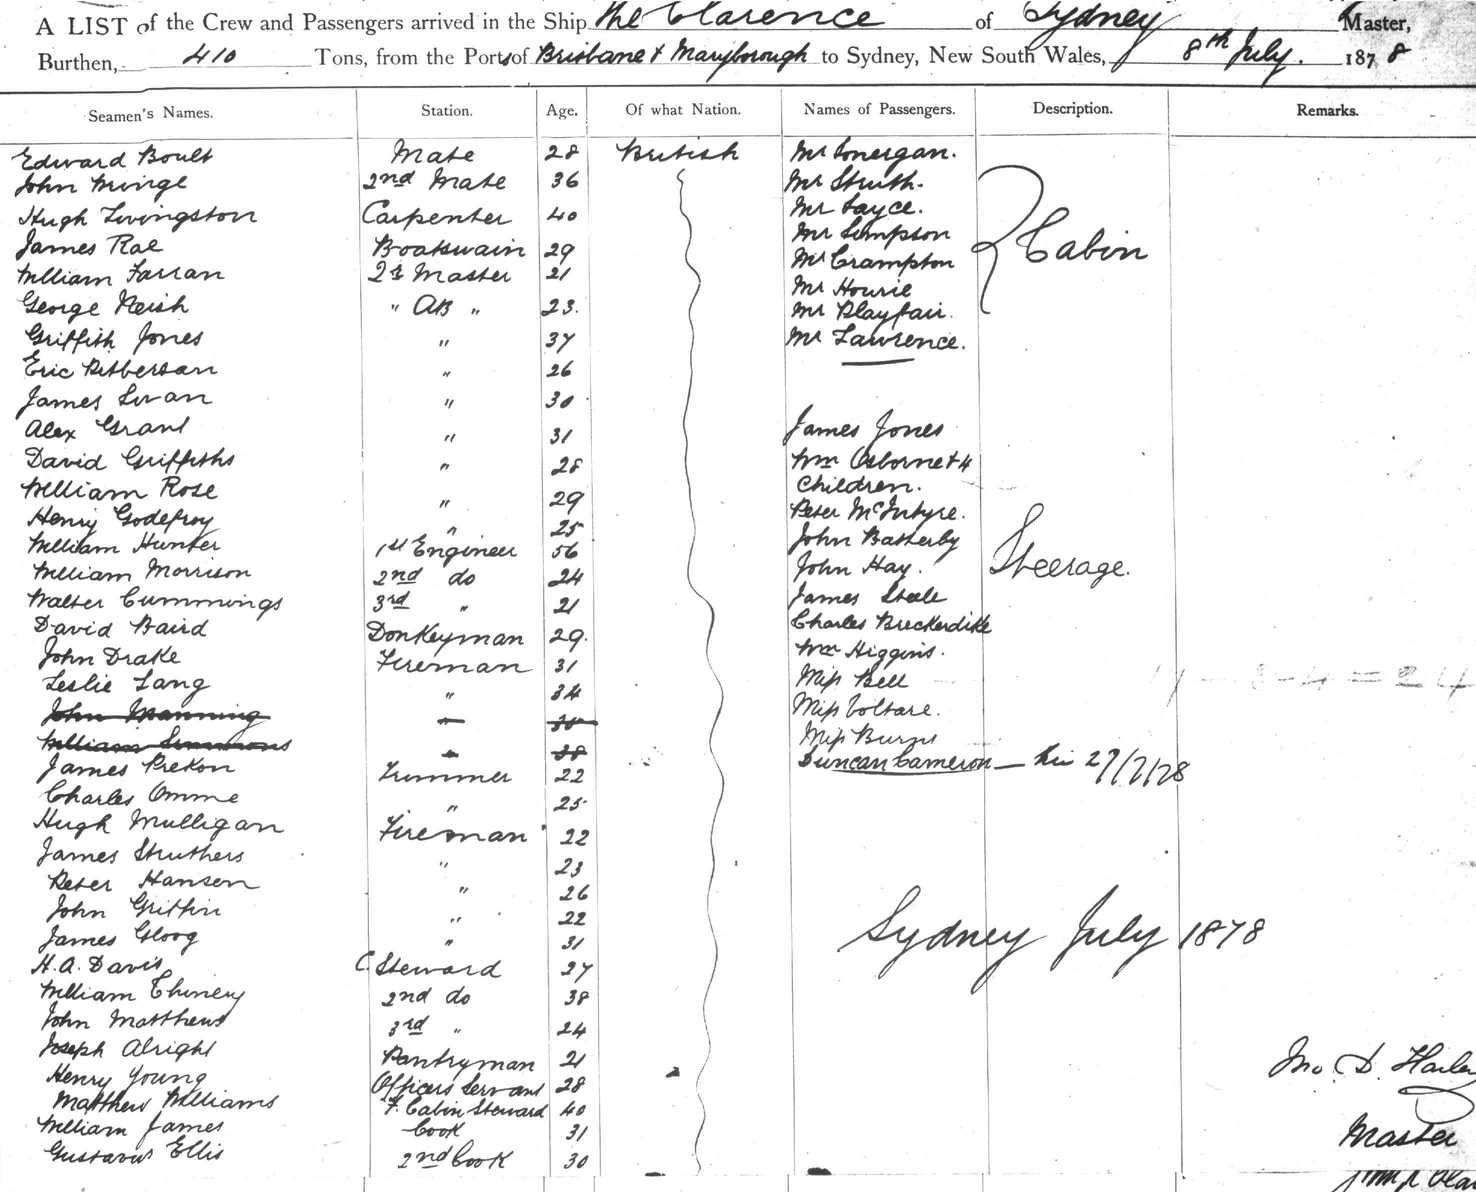 A LIST of the Crew and Passengers arrived in the Ship The Clarence of Sydney Master,
Burthen, 410 Tons, from the Ports of Brisbane & Maryborough to Sydney, New South Wales, 8th July. 1878
Seamen's Names. Station. Age. Of what Nation. Names of Passengers. Description. Remarks.
Edward Boult Mate 28 British Mr Lonergan.
John Mingle 2nd Mate 36 Mr Struth.
Hugh Livingston Carpenter 40 Mr Sayce.
James Rae Boatswain 29 Mr Simpson
William Farran 2r Master 21 Mr Crampton
George Neish " AB " 23. Mr Hourie
Griffith Jones " 37 Mr Playfair.
Mr Lawrence.
Cabin
Eric Petberson " 26
James Swan " 30
Alex Grant " 31 James Jones
David Griffiths " 28 Wm Osborne & 4
William Rose " 29 Children.
Henry Godefroy " 25 Peter McIntyre.
William Hunter 1st Engineer 56 John Batherby
William Morrison 2nd do 24 John Hay.
Walter Cummings 3rd " 21 James Steele
David Baird Donkeyman 29. Charles Breckerdike
John Drake Fireman 31 Wm Higgins.
Leslie Lang " 34 Miss Bell
John Manning " Miss Voltare.
William Simmons " 38 Miss Burns
James Prekon Trimmer 22 Duncan Cameron — 27/7/78
Steerage.
Charles Omme " 25
Hugh Mulligan Fireman 22
James Struthers " 23
Peter Hansen " 26
John Griffin " 22
James Gloog " 31
Sydney July 1878
H. A. Davis C. Steward 27
William Thinery 2nd do 38
John Matthews 3rd " 24
Joseph Alright Pantryman 21
Henry Young Officers Servant 28
Matthew Williams F. Cabin Steward 40
William James Cook 31
Gustavus Ellis 2nd Cook 30
Jno. D.
Master